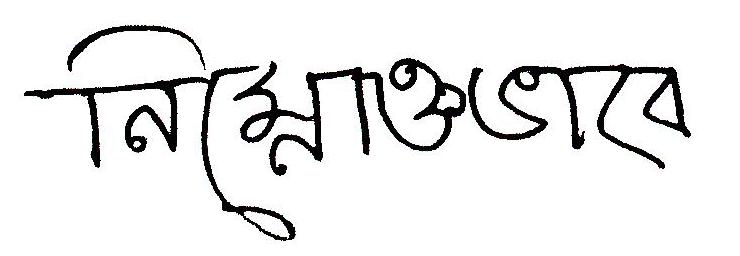 নিম্নোক্তভাবে